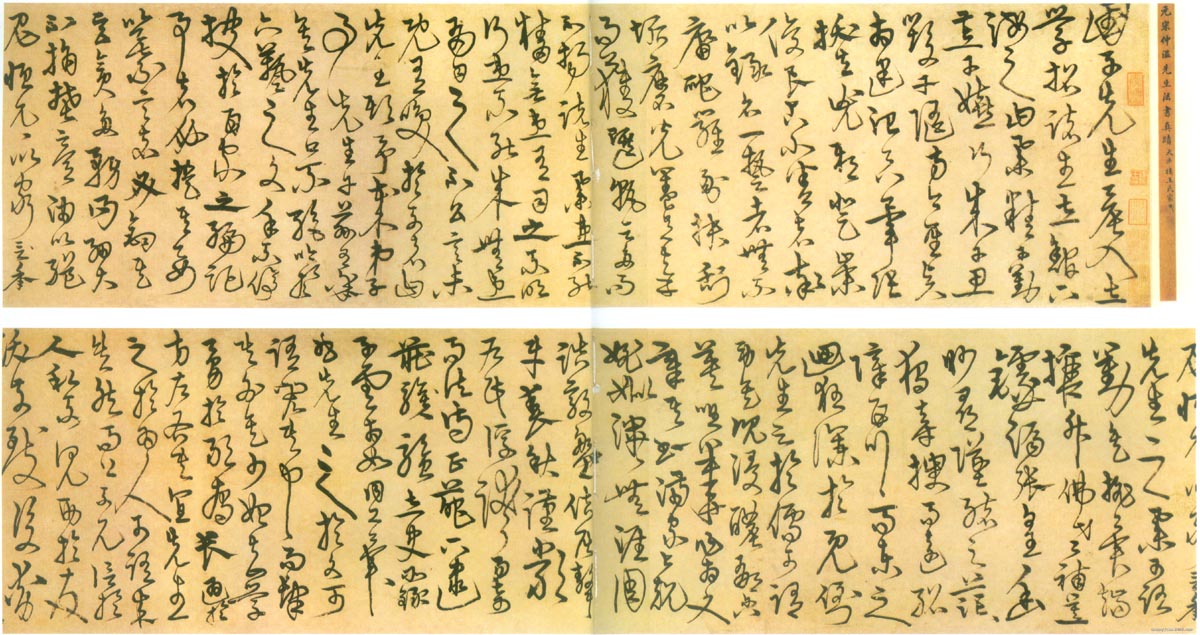 元宋仲溫先生法書真蹟
國子先生晨入太
學招諸生立館下
誨之曰業精于勤
荒于嬉行成于思
毀于隨方今聖賢
相逢治具畢張
拔去兇邪登崇
俊良占小善者率
以錄名一藝者無不
庸爬羅剔抉刮
垢磨光蓋有幸
而獲選孰云多而
不揚諸生業患不能
精無患有司之不明
行患不能成無患
有司之不公言未
既有笑於列者曰
先生欺予哉弟子
事先生于茲有年
矣先生口不絕吟於
六藝之文手不停
披於百家之編記
事者必提其要
纂言者必鉤其
玄貪多務得細大
不捐焚膏油以繼
晷恒兀兀以窮
先生之業可謂
勤矣觝排異端
攘斥佛老補苴
罅漏張皇幽
眇尋墜緒之茫茫
獨旁搜而遠紹
障百川而東之
迴狂瀾於既倒
先生之於儒可謂
勞矣沉浸醲郁含
英咀華作為文
章其書滿家上規
姚姒渾渾無涯周
誥殷盤佶屈聱
牙春秋謹嚴
左氏浮誇易奇
而法詩正而葩下逮
莊騷太史所錄
子雲相如同工異
曲先生之於文可
謂閎其中而肆
其外矣少始知學
勇於敢為長通於
方左右具宜先生
之於為人可謂成
矣然而公不見信於
人私不見助於友
跋前躓後